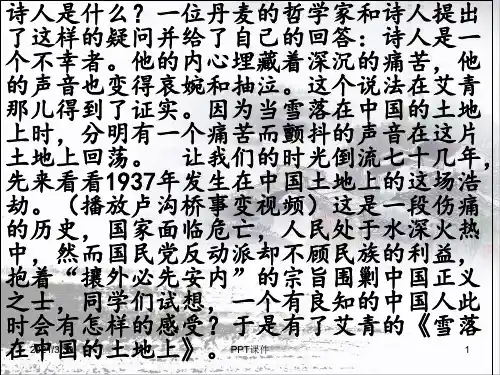 诗人是什么？一位丹麦的哲学家和诗人提出
了这样的疑问并给了自己的回答：诗人是一
个不幸者。他的内心埋藏着深沉的痛苦，他
的声音也变得哀婉和抽泣。这个说法在艾青
那儿得到了证实。因为当雪落在中国的土地
上时，分明有一个痛苦而颤抖的声音在这片
土地上回荡。　让我们的时光倒流七十几年，
先来看看1937年发生在中国土地上的这场浩
劫。（播放卢沟桥事变视频）这是一段伤痛
的历史，国家面临危亡，人民处于水深火热
中，然而国民党反动派却不顾民族的利益，
抱着“攘外必先安内”的宗旨围剿中国正义
之士，同学们试想，一个有良知的中国人此
时会有怎样的感受？于是有了艾青的《雪落
在中国的土地上》。
PPT课件
1